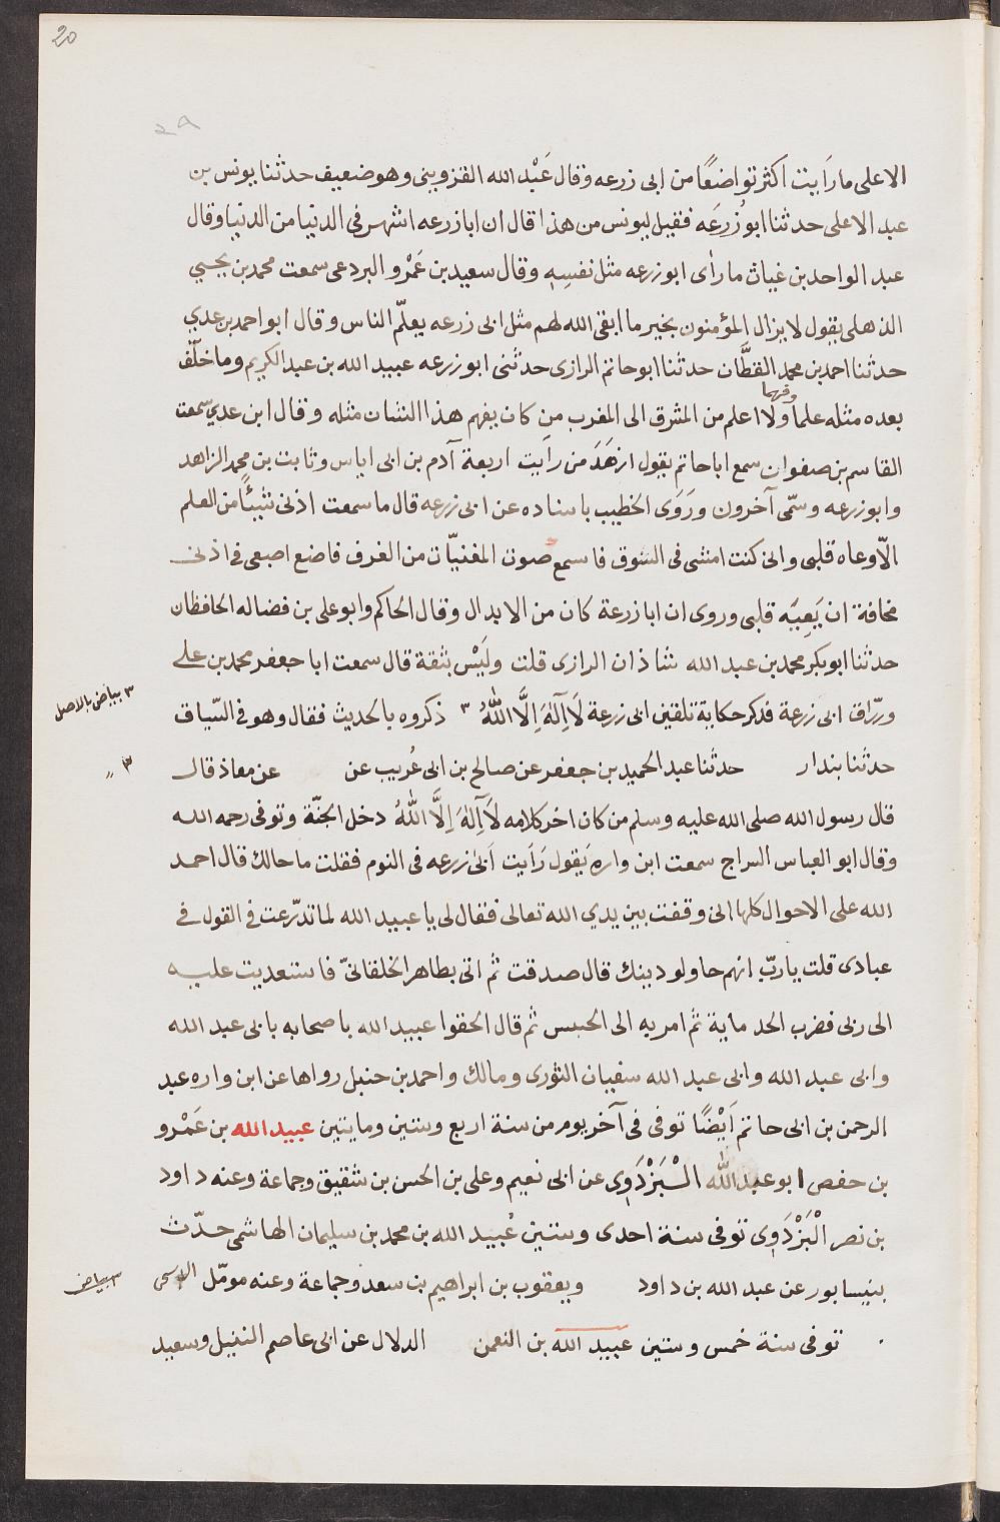 20
٢٩
الاعلى ما رَايت اكثر تواضعًا من ابى زرعه وقال عَبْد الله القزوينى وهو ضعيف حدثنا يونس بن
عبد الاعلى حدثنا ابو زُرعَه فقيل ليونس من هذا قال ان ابا زرعه اشهر فى الدنيا من الدنيا وقال
عبد الواحد بن غياث ما راى ابو زرعه مثل نفسِهِ وقال سعيد بن عَمْرو البردعى سمعت محمد بن يحيي
الذهلى يقول لا يزال المؤمنون بخير ما ابقى الله لهم مثل ابى زرعه يعلّم الناس وقال ابو احمد بن عدي
حدثنا احمد بن محمد القطَّان حدثنا ابو حاتم الرازى حدثنى ابو زرعه عبيد الله بن عبد الكريم وما خلّف
وفهما
بعده مثله علما ولا اعلم من المشرق الى المغرب من كان يفهم هذا الشان مثله وقال ابن عدي سمعت
القاسم بن صفوان سمع ابا حاتم يقول ازهَدَ من رايت اربعة آدم بن ابى اياس وثابت بن محمد الزاهد
وابو زرعه وسمّى آخرون ورَوَى الخطيب باسناده عن ابى زرعه قال ما سمعت اذنى شيئًا من العلم
الّا وعاه قلبى وانى كنت امشى فى السوق فاسمع صوت المغنيّات من الغرف فاضع اصبعى فى اذنى
مخافة ان يَعِيَه قلبى وروى ان ابا زرعة كان من الابدال وقال الحاكم وابو على بن فضاله الحافظان
حدثنا ابو بكر محمد بن عبد الله شاذان الرازى قلت ولَيْس بثقة قال سمعت ابا جعفر محمد بن على
ورّاق ابى زرعة فذكر حكاية تلقين ابى زرعة لَا اِلٰهَ اِلَّا اللّٰهُ ٣ ذكروه بالحديث فقال وهو فى السّياق
٣ بياض بالاصل
حدثنا بندار حدثنا عبد الحميد بن جعفر عن صالح بن ابى عُريب عن عن معاذ قال
٣ ״
قال رسول الله صلى الله عليه وسلم من كان اخر كلامه لَا اِلٰهَ اِلَّا اللّٰهُ دخل الجنّة وتوفى رحمه الله
وقال ابو العباس السراج سمعت ابن واره يَقول رَاَيت اَبى زرعه فى النوم فقلت ما حالك قال احمد
الله على الاحوال كلها انى وقفت بين يدي الله تعالى فقال لى يا عبيد الله لما تدرّعت فى القول فى
عبادى قلت يا ربّ انهم حاولو دينك قال صدقت ثم اتى بطاهر الخلقانىّ فاستعديت عليه
الى ربى فضرب الحد ماية ثم امر به الى الحبس ثم قال الحقوا عبيد الله باصحابه بابى عبد الله
وابى عبد الله وابى عبد الله سفيان الثورى ومالك واحمد بن حنبل رواها عن ابن واره عبد
الرحمن بن ابى حاتم اَيْضًا توفى فى آخر يوم من سنة اربع وستين ومايتين عبيد الله بن عَمْرو
بن حفص ابو عبد الله الْبَزْدَوِى عن ابى نعيم وعلى بن الحسن بن شقيق وجماعة وعنه داود
بن نصر الْبَزْدَوِى توفى سنة احدى وستين عُبيد الله بن محمد بن سليمان الهاشمى حدّث
بنيسابور عن عبد الله بن داود ويعقوب بن ابراهيم بن سعد وجماعة وعنه مومّل
٣ بياض
توفى سنة خمس وستين عبيد الله بن النعمن الدلال عن ابى عاصم النبيل وسعيد